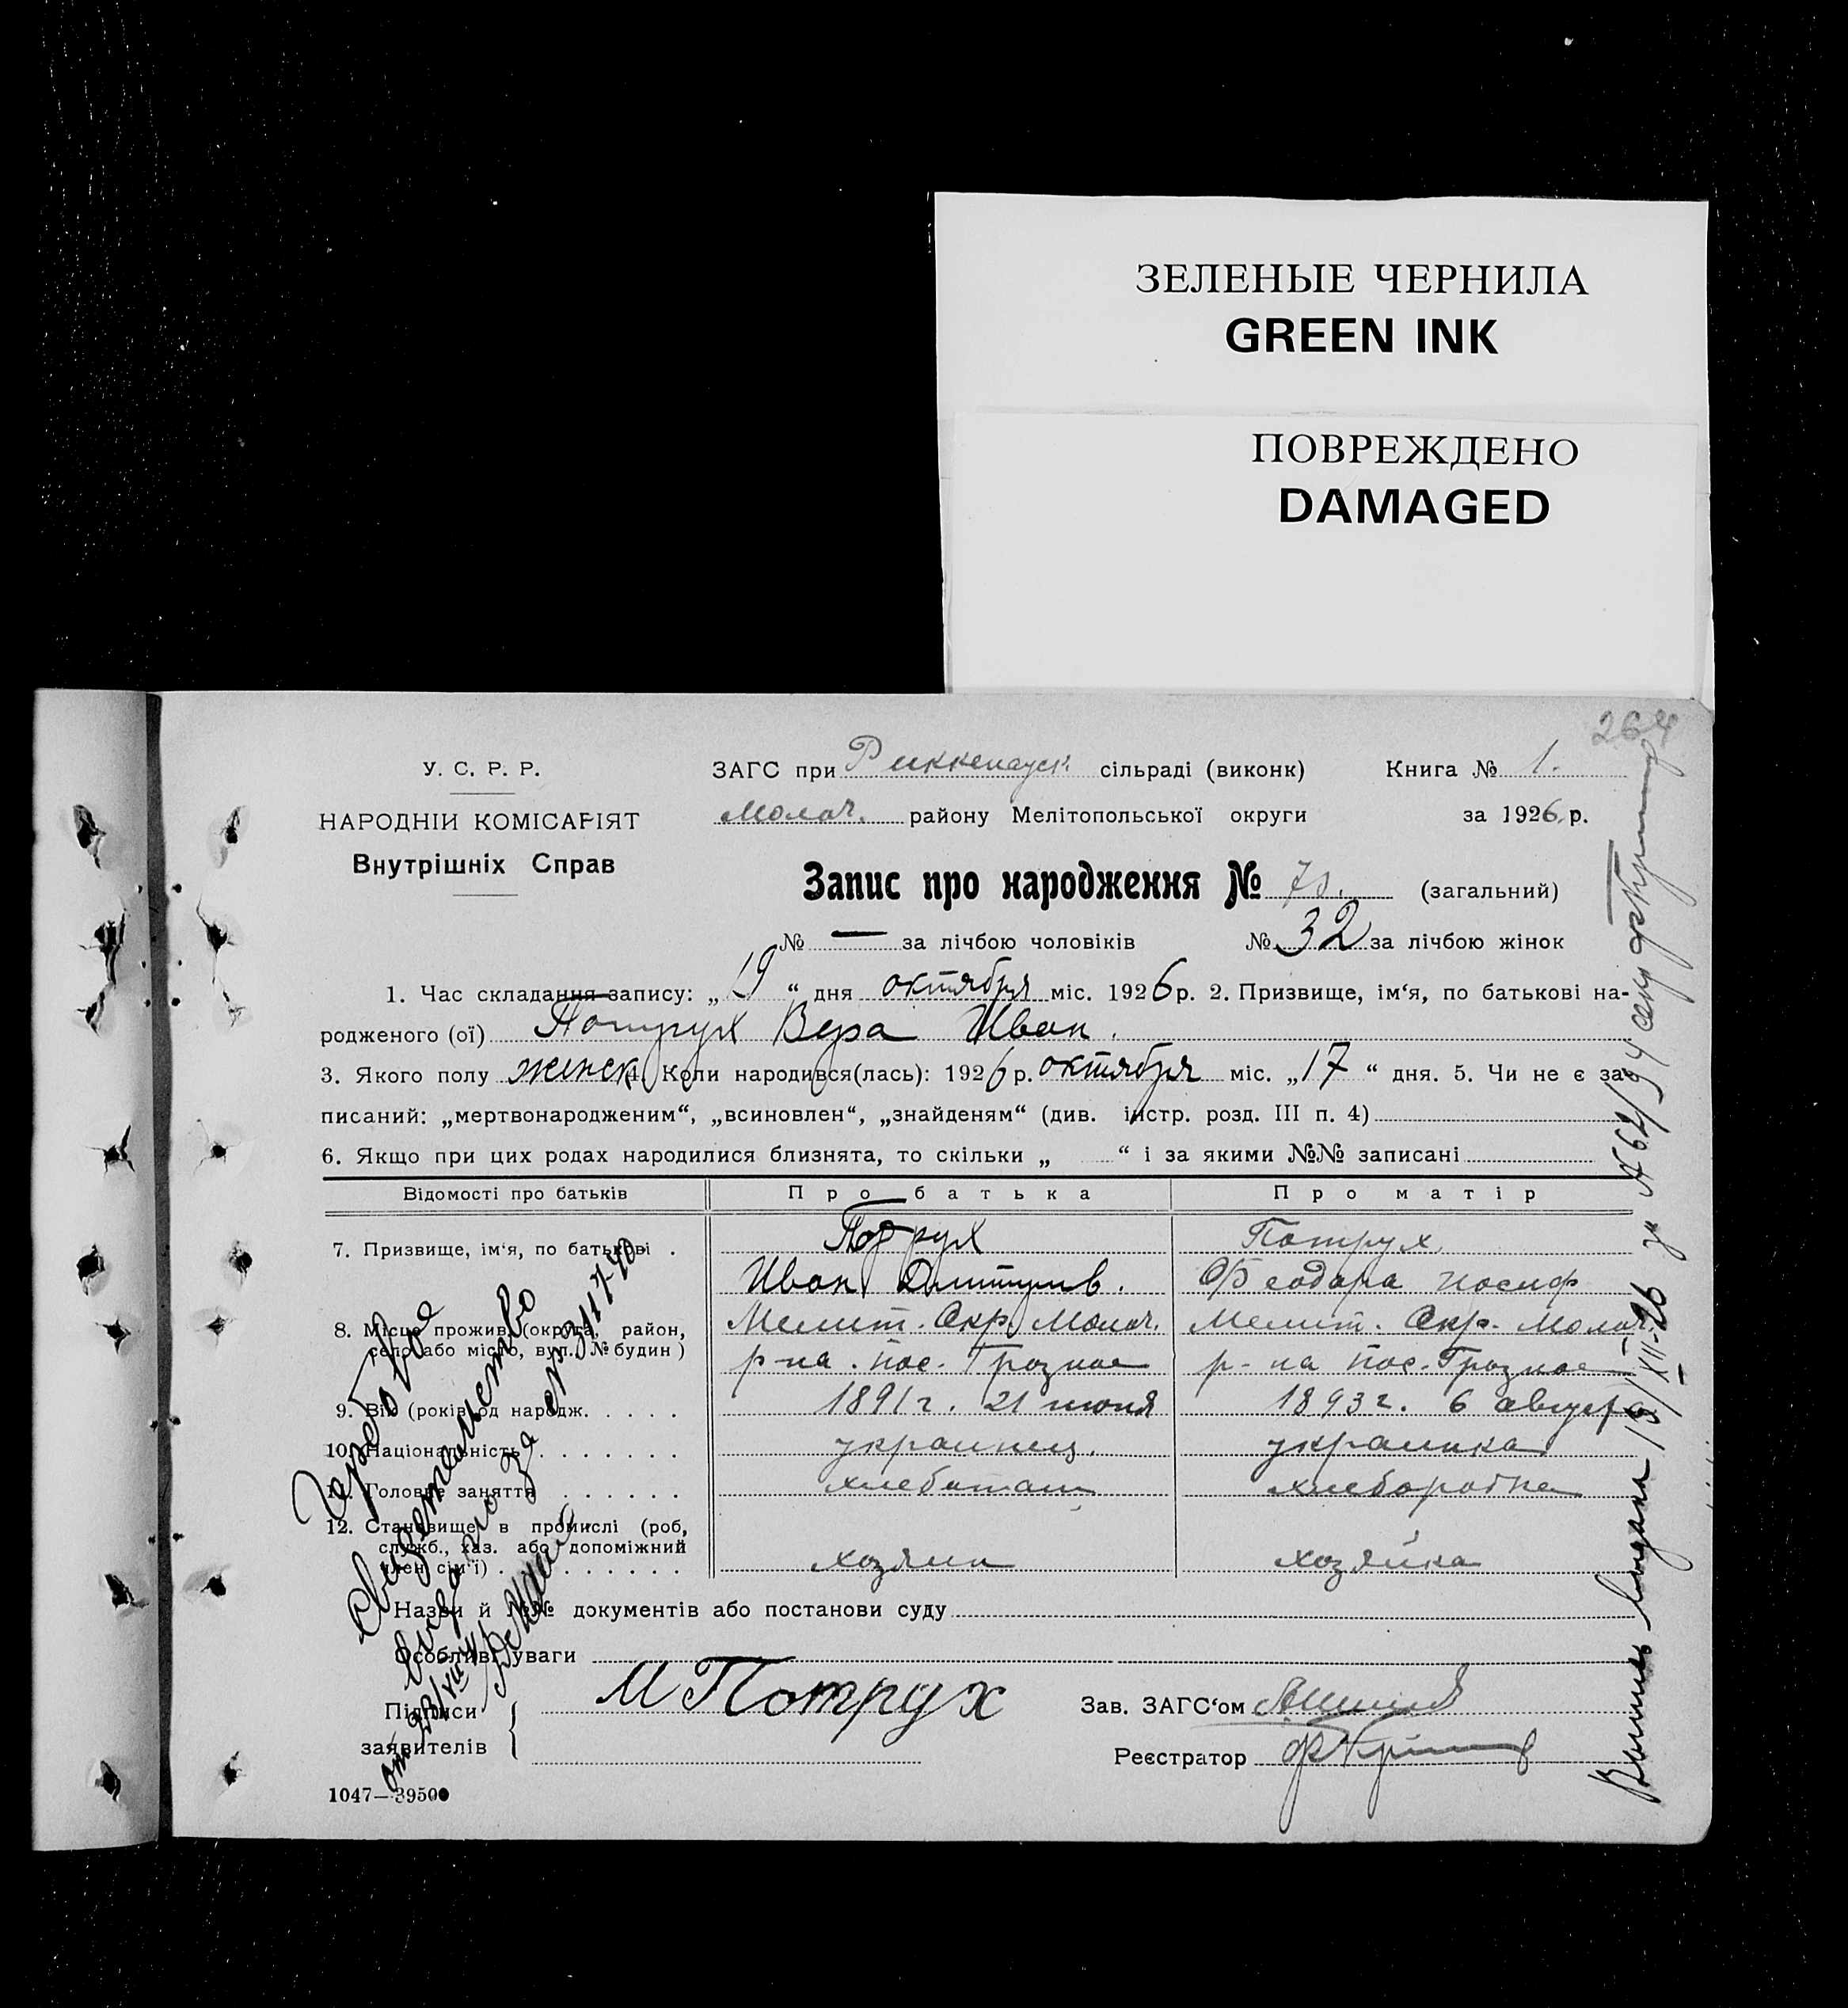 ЗЕЛЕНЫЕ ЧЕРНИЛА
GREEN INK
ПОВРЕЖДЕНО
DAMAGED
264
У. С. Р. Р.
НАРОДНІЙ КОМІСАРІЯТ
Внутрішніх Справ
ЗАГС при сільраді (виконк) Книга № 1.
Молоч. району Мелітопольської округи за 1926 р.
Запис про народження № (загальний)
№ — за лічбою чоловіків № 32 за лічбою жінок
1. Час складання запису: „19“ дня октября міс. 1926 р. 2. Призвище, ім‘я, по батькові на-
родженого (ої) Потрух Вера Иван.
3. Якого полу женск 4. Коли народився(лась): 1926 р. октября міс. „17“ дня. 5. Чи не є за-
писаний: „мертвонародженим“, „всиновлен“, „знайденям“ (див. інстр. розд. III п. 4)
6. Якщо при цих родах народилися близнята, то скільки „ “ і за якими №№ записані
Відомості про батьків Про батька Про матір
7. Призвище, ім‘я, по батькові . Потрух Потрух
Иван Феодора Иосиф
8. Місце прожив. (округа, район, Мелит. Окр. Молоч. Мелит. Окр. Молоч.
село або місто, вул. № будин) р-на. пос. Грозное р-на пос. Грозное
9. Вік (років од народж. . . . . 1891 г. 21 июня 1893 г. 6 августа
10. Національність . . . . . . . украинец. украинка
11. Головне заняття . . . . . .
12. Становище в промислі (роб,
служб., хаз. або допоміжний
член сім‘ї) . . . . . . . . . . хозяин хозяйка
Назви й №№ документів або постанови суду
Особливі уваги
Підписи М Потрух Зав. ЗАГС‘ом
заявителів Реєстратор
1047—39500
Гербовое
Свидетельство